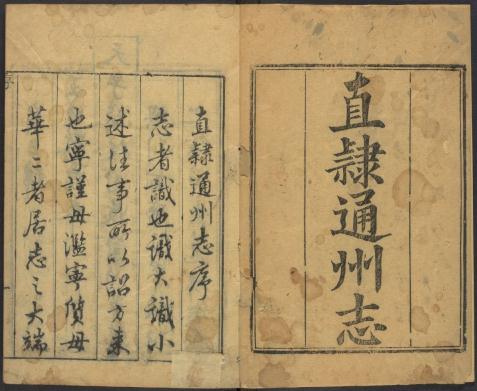 直隸通州志
直隸通州志序
志者識也識大識小
述往事所以詔方來
也寧謹毋濫寧質毋
華二者居志之大端